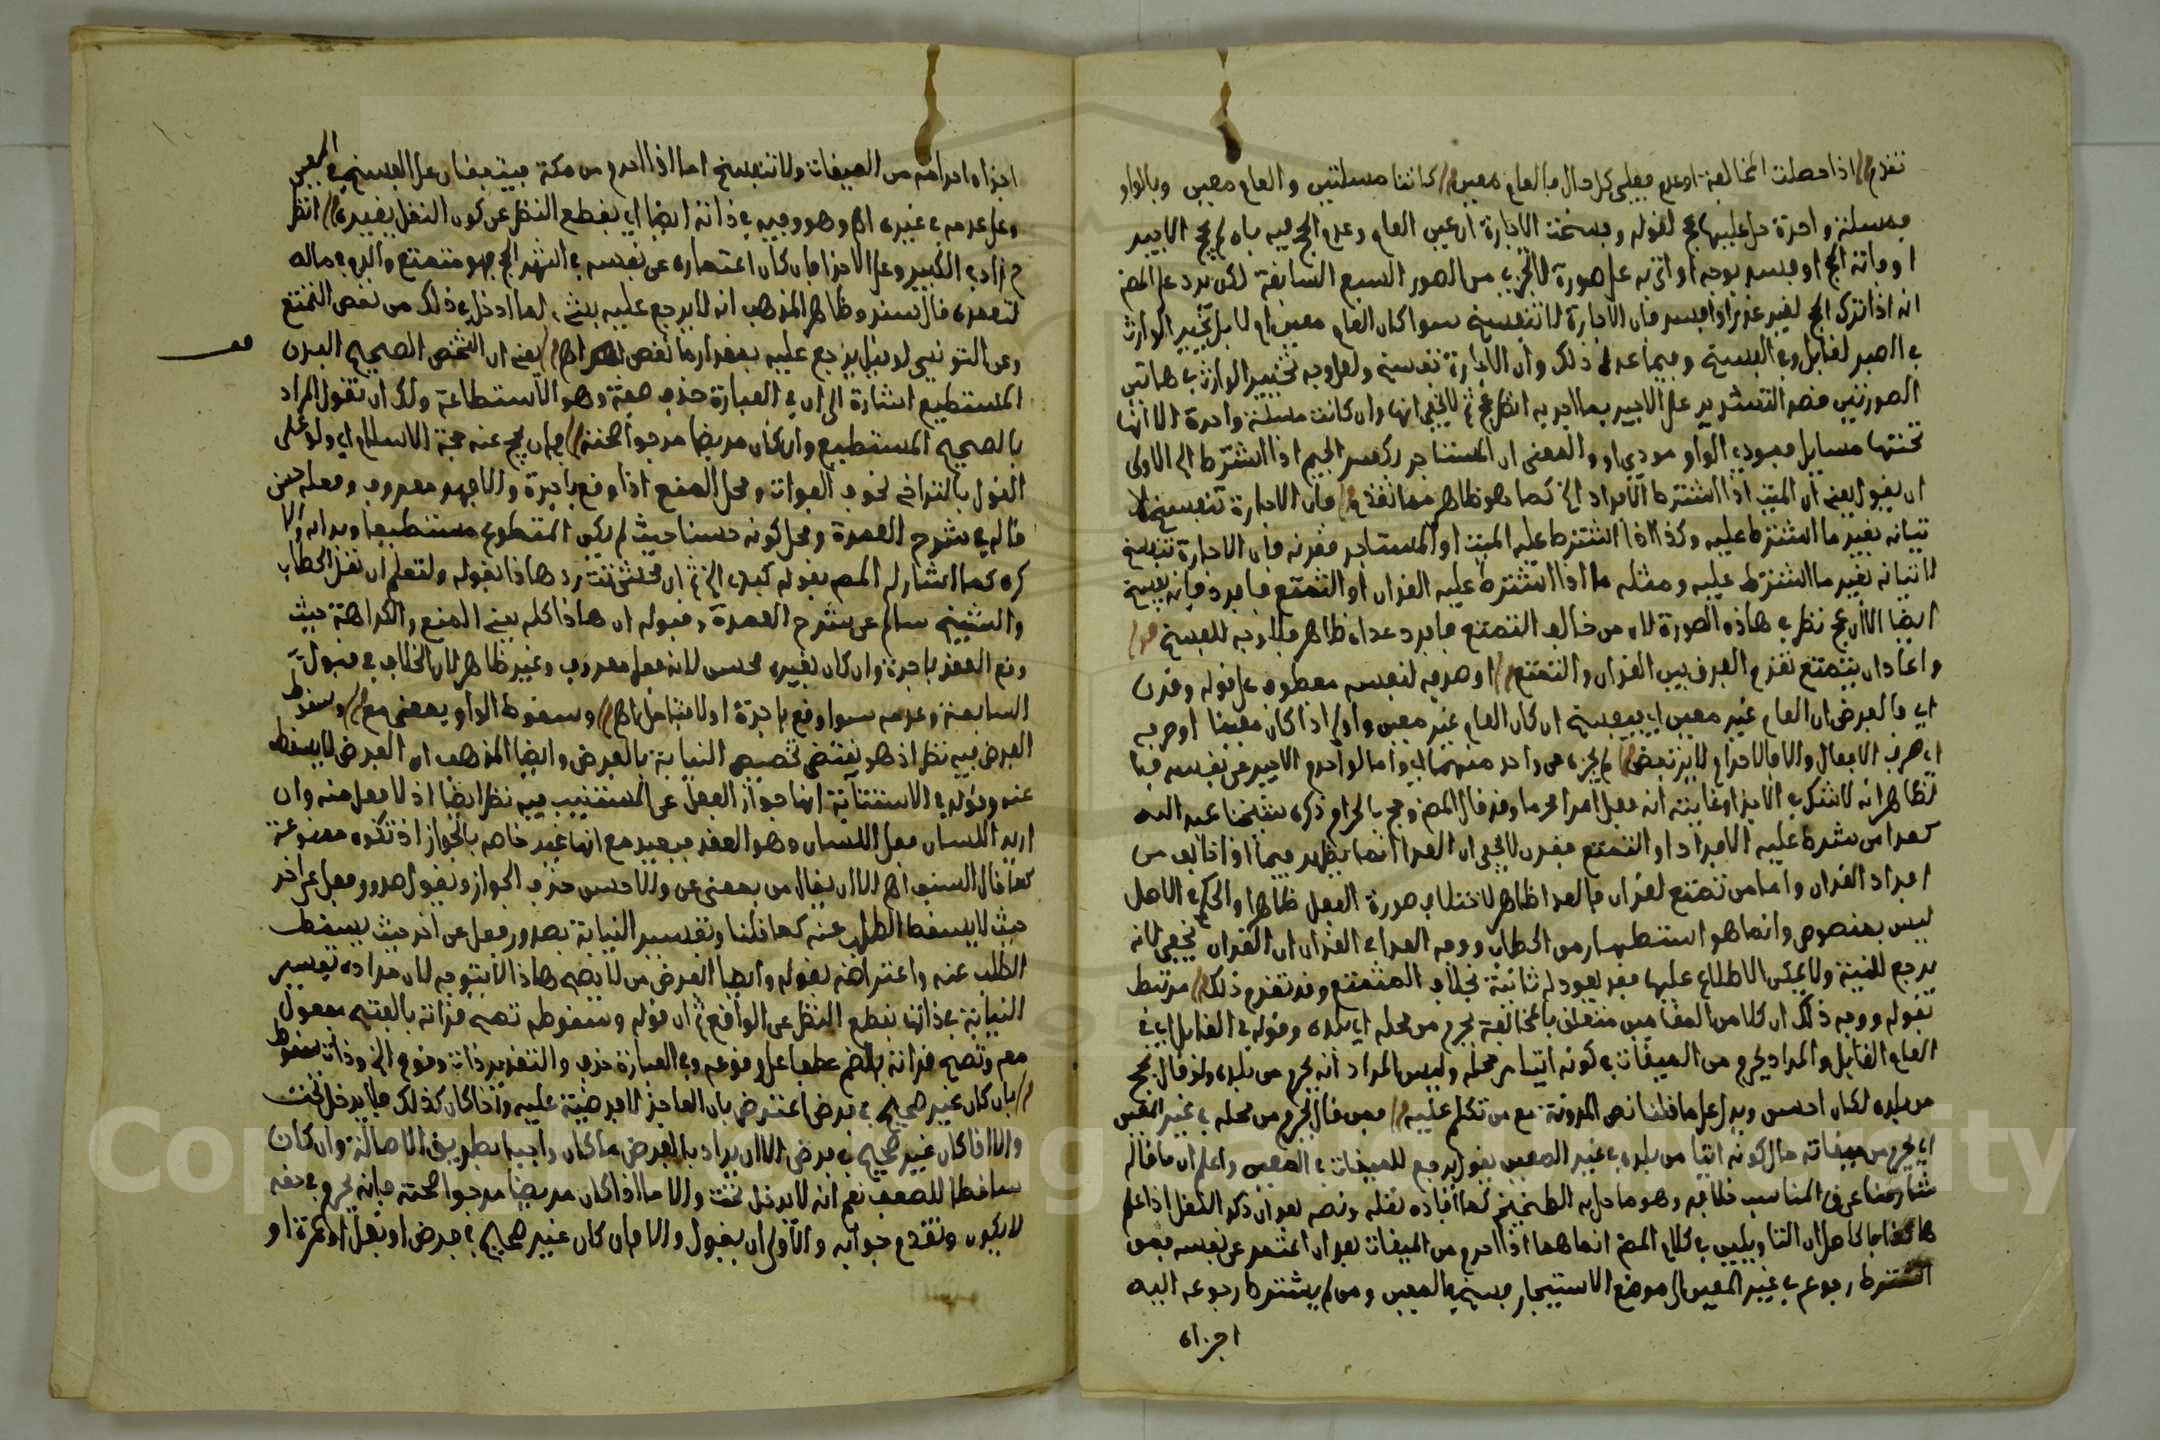 تقدم اذا حصلت المخالفة او عدم فعلى كل حال فالعام معين كانتا مسئلتين والعام معين وبالواو
فمسئلة واحدة حل عليها عج لقوله وفسخت الاجارة ان عين العام وعدم الحج فيه بان لم يحج الاجير
او فاته الحج او فسد بوجه او اتى به على صورة لا تجزي من الصور السبع السابقة لكن يرد على المص
انه اذا ترك الحج لغير عذر او افسد فان الاجارة لا تنفسخ سوا كان العام معين ام لا بل يخير الوارث
في الصبر لقابل وفي الفسخ وفيما عدا ذلك وان الاجارة تنفسخ ولعل وجه تخيير الوارث في هاتين
الصورتين قصد التشديد على الاجير بما اجر به انظر عج ثم لا يخفى انها وان كانت مسئلة واحدة الا انها
تحتها مسايل فمودى الواو مودى او والمعنى ان المستاجر بكسر الجيم اذا اشترط الخ الاولى
ان يقول يعني ان الميت اذا اشترط الافراد الخ كما هو ظاهر مما تقدم فان الاجارة تنفسخ لا
تيانه بغير ما اشترط عليه وكذا اذا اشترط عليه الميت او المستاجر فقرنه فان الاجارة تنفسخ
لاتيانه بغير ما اشترط عليه ومثله ما اذا اشترط عليه القران او التمتع فافرد فانه يفسخ
ايضا الا ان عج نظر في هاذه الصورة لان من خالف التمتع فافرد عداه ظاهر فلا وجه للفسخ قوله
واعاد ان يتمتع تقدم الفرق بين القران والتمتع او صرفه لنفسه معطوف على قوله وقرن
اي والفرض ان العام غير معين اي فيفسخ ان كان العام غير معين واولى اذا كان معينا او صرفه
اي صرف الافعال والا فالاحرام لا يرتفض لم يجزه عن واحد منهما اي واما لو احرم الاجير عن نفسه فيا
لظاهر انه لا شك في الاجزا وغايته انه فعل امرا محرما وقد قال المص وحج بالحرام ذكره شيخنا عبد الله
كعدا من شرط عليه الافراد او التمتع فقرن لا يخفى ان العدا انما يظهر فيما اذا خالف من
افراد القران واما من تمتع لقران فالعدا ظاهر لاختلاف صورة الفعل ظاهرا والحكم في الاصل
ليس بمنصوص وانما هو استظهار من الحطاب ووجه العدا في القران ان القران يخفى لانه
يرجع للنية ولا يمكن الاطلاع عليها فقد يعود له ثانية بخلاف المتمتع وقد تقدم ذلك مرتبط
بقوله ووجه ذلك ان كلا من المقامين متعلق بالمخالفة يحرم من محله اي بلده وقوله في القابل اي في
العام القابل والمراد يحرم من الميقات في كونه اتيا من محله وليس المراد انه يحرم من بلده ولو قال يحج
من بلده لكان احسن ويدل على ما قلنا نص المدونة مع من تكلم عليه فمن قال يحرم من محله في غير المعين
اي يحرم من ميقاته حال كونه اتيا من بلده في غير المعين يقول يرجع للميقات في المعين واعلم ان ما قاله
شارحنا عن المناسب خلافه وهو ما حل به الطخيخي كما افاده نقله ونصه بعد ان ذكر النقل اذا علم
هاكذا فالحاصل ان التاويلين في كلام المص انما هما اذا احرم من الميقات بعد ان اعتمر عن نفسه فمن
اشترط رجوعه في غير المعين الى موضع الاستيجار فسخ في المعين ومن لم يشترط رجوعه اليه
اجزاه
اجزاه احرامه من الميقات ولا تنفسخ اما اذا احرم من مكة فيتفقان على الفسخ في المعين
وعلى عدمه في غيره اه وهو وجيه في ذاته ايضا اي بقطع النظر عن كون النقل بغيره انظر
م زاد في الكبير وعلى الاجزا فان كان اعتماره عن نفسه في اشهر الحج فهو متمتع والدم في ماله
لتعمده قال سند وظاهر المذهب انه لا يرجع عليه بشيء لما ادخل في ذلك من نقص التمتع
وعن التونسي لو قيل يرجع عليه بمقدار ما نقص اه يعني ان الشخص الصحيح البدن
قف
المستطيع اشارة الى ان في العبارة حذف صفة وهو الاستطاعة ولك ان تقول المراد
بالصحيح المستطيع وان كان مريضا مرجوا صحته فان يحج عنه حجة الاسلام اي ولو على
القول بالتراخي لخوف الفوات ومحل المنع اذا وقع باجرة والا فهو معروف وفعله حسن
قاله في شرح العمدة ومحل كونه حسنا حيث لم يكن المتطوع مستطيعا وبداه والا
كره كما اشار له المص بقوله كبدء الخ ثم ان محشي تت رد هاذا بقوله ولتعلم ان نقل الحطاب
والشيخ سالم عن شرح العمدة وقبوله ان هاذا كله يعني المنع والكراهة حيث
وقع العقد باجرة وان كان بغيره فحسن لانه فعل معروف وغير ظاهر لان الخلاف في قبول
السابعة وعدمه سوا وقع باجرة او لا فتامل اه وسقوط الواو بمعنى مع وسقوط
الفرض فيه نظر اذ هو يقتضي تخصيص النيابة بالفرض وايضا المذهب ان الفرض لا يسقط
عنه وقوله في الاستنابة انها جواز الفعل عن المستنيب فيه نظر ايضا اذ لا فعل منه وان
اريد اللسان فعل اللسان وهو العقد فبعيد مع انها غير خاصه بالجواز اذ تكون ممنوعة
كما قال السنهـ اه الا ان يقال من بمعنى عن والاحسن حذف الجواز ويقول صدور فعل عن اخر
حيث لا يسقط الطلب عنه كما قلنا وتفسير النيابة بصدور فعل عن اخر حيث يسقط
الطلب عنه واعتراضه بقوله وايضا الفرض من لا يصح هاذا لا يتوجه لان مراده تفسير
النيابة في ذاتها بقطع النظر عن الواقع ثم ان قوله وسقوطه تصح قراته بالفتح مفعول
معه وتصح قراته بالضم عطفا على وقوعه وفي العبارة حذف والتقدير ذات وقوع الخ وذات سقوط
بان كان غير صحيح في فرض اعترض بان العاجز لا فرضية عليه واذا كان كذلك فلا يدخل تحت
والا اذا كان غير صحيح في فرض الا ان يراد بالفرض ما كان واجبا بطريق الاصالة وان كان
ساقطا للضعف نعم انه لا يدخل تحت والا ما اذا كان مريضا مرجوا صحته فانه يحرم في حقه
لا يكون وتقدم جوابه والاولى ان يقول والا فان كان غير صحيح في فرض او نفل او عمرة او